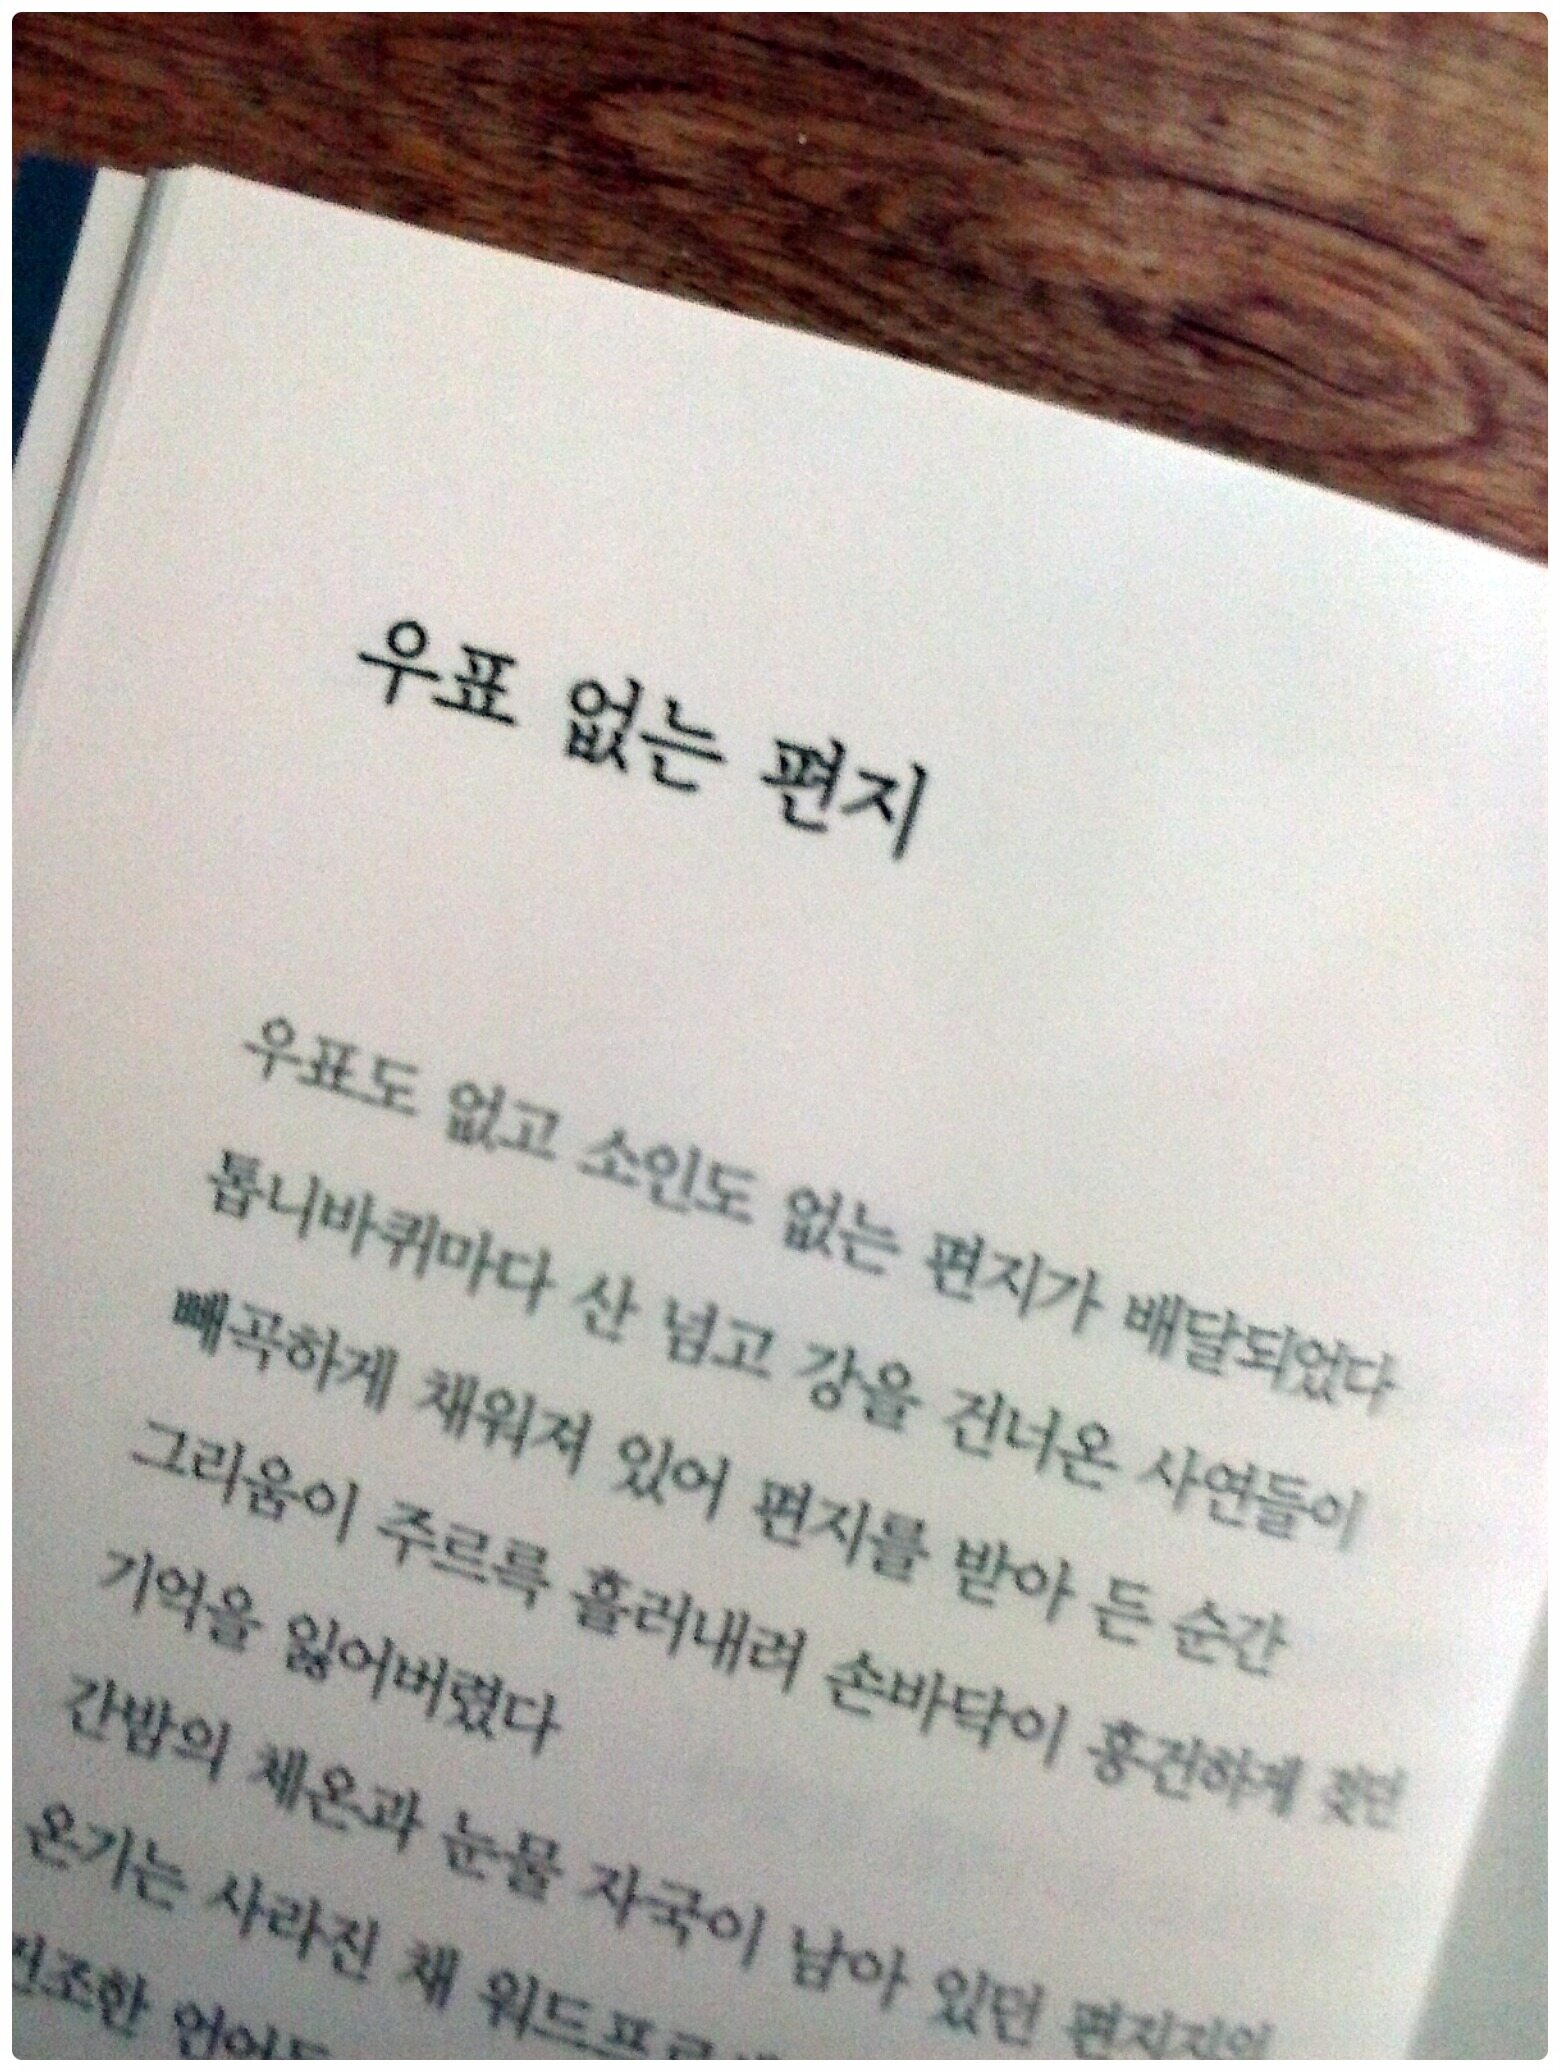 우표 없는 편지
우표도 없고 소인도 없는 편지가 배달되었다
톱니바퀴마다 산 넘고 강을 건너온 사연들이
빼곡하게 채워져 있어 편지를 받아 든 순간
그리움이 주르륵 흘러내려 손바닥이 흥건하게 젖던
기억을 잃어버렸다
간밤의 체온과 눈물 자국이 남아 있던 편지지의
온기는 사라진 채